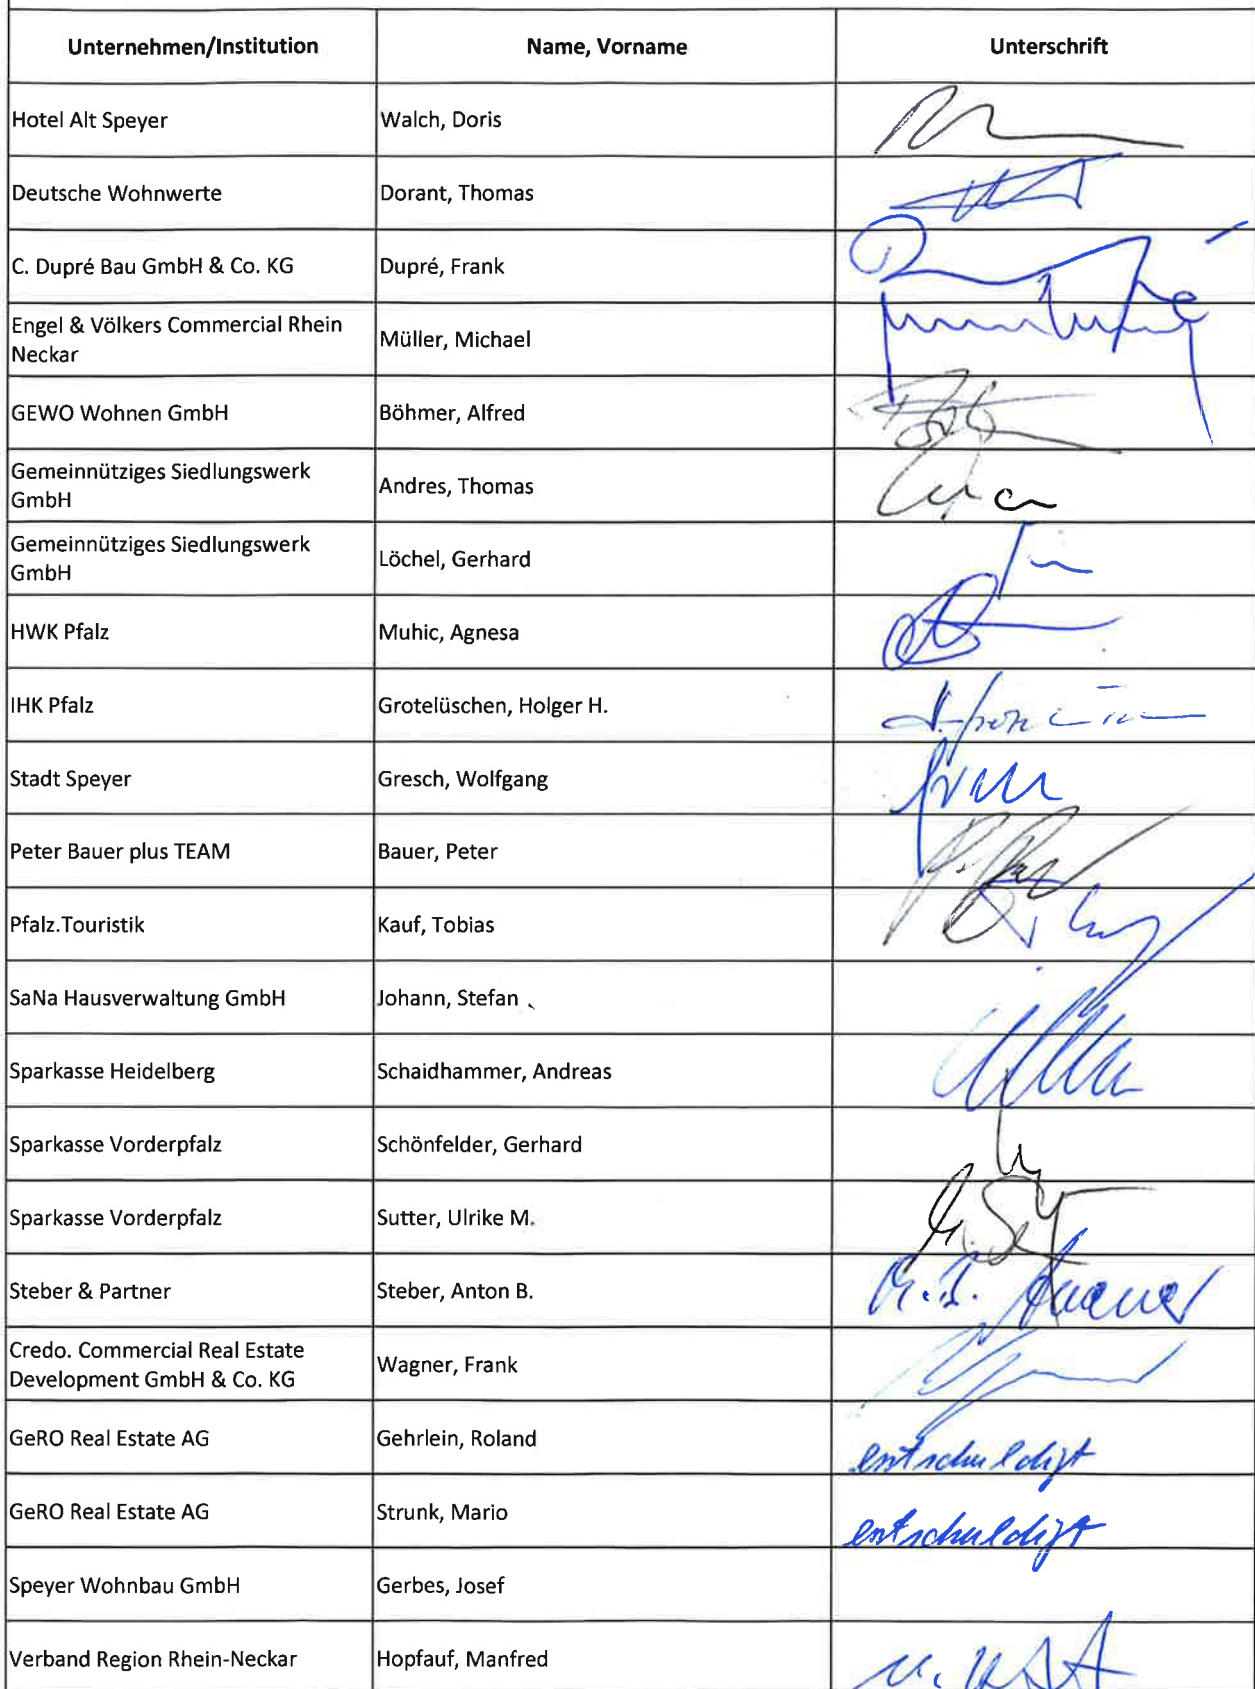 Unternehmen/Institution Name, Vorname Unterschrift
Hotel Alt Speyer Walch, Doris
Deutsche Wohnwerte Dorant, Thomas
C. Dupré Bau GmbH & Co. KG Dupré, Frank
Engel & Völkers Commercial Rhein
Neckar Müller, Michael
GEWO Wohnen GmbH Böhmer, Alfred
Gemeinnütziges Siedlungswerk
GmbH Andres, Thomas
Gemeinnütziges Siedlungswerk
GmbH Löchel, Gerhard
HWK Pfalz Muhic, Agnesa
IHK Pfalz Grotelüschen, Holger H.
Stadt Speyer Gresch, Wolfgang
Peter Bauer plus TEAM Bauer, Peter
Pfalz.Touristik Kauf, Tobias
SaNa Hausverwaltung GmbH Johann, Stefan
Sparkasse Heidelberg Schaidhammer, Andreas
Sparkasse Vorderpfalz Schönfelder, Gerhard
Sparkasse Vorderpfalz Sutter, Ulrike M.
Steber & Partner Steber, Anton B.
Credo. Commercial Real Estate
Development GmbH & Co. KG Wagner, Frank
GeRO Real Estate AG Gehrlein, Roland entschuldigt
GeRO Real Estate AG Strunk, Mario entschuldigt
Speyer Wohnbau GmbH Gerbes, Josef
Verband Region Rhein-Neckar Hopfauf, Manfred